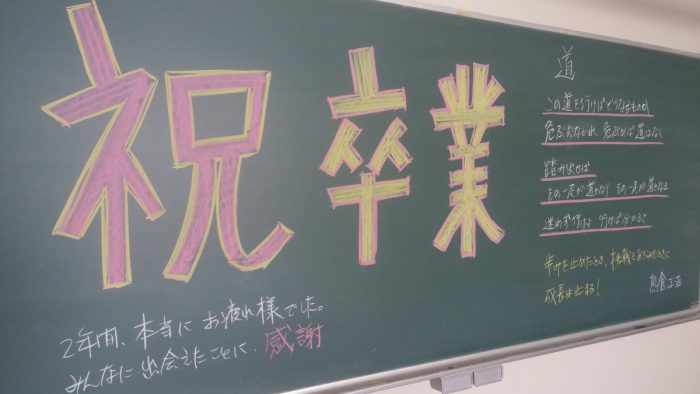 祝卒業
道
この道を行けばどうなるものか
危ぶむなかれ 危ぶめば道はなし
踏み出せば
その一足が道となり その一足が道となる
迷わず行けよ 行けば分かるさ
歩みを止めたとき、挑戦をあきらめたときに
成長は止まる!
熊倉
2年間、本当にお疲れ様でした。
みんなに出会えたことに、感謝